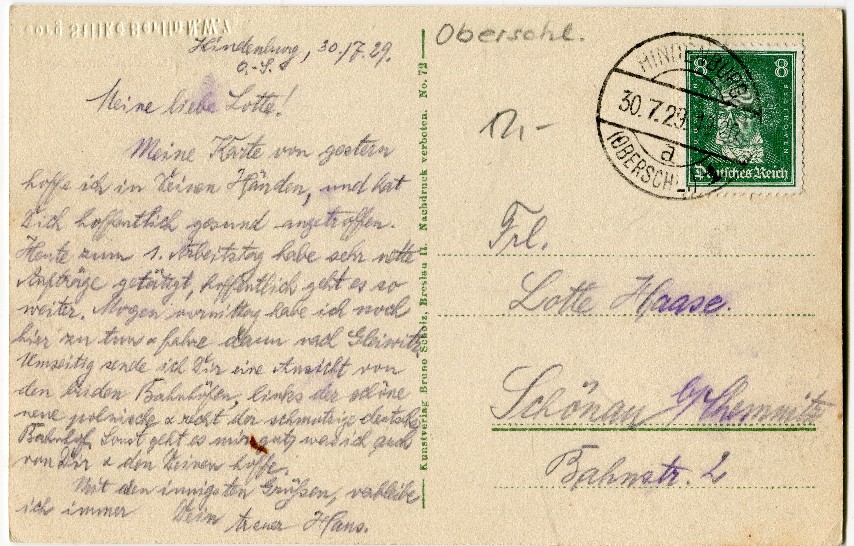 Georg Stilke Berlin NW 7
Hindenburg, 30./7. 29.
O.-S.
Meine liebe Lotte!
Meine Karte von gestern
hoffe ich in Deinen Händen, und hat
Dich hoffentlich gesund angetroffen.
Heute zum 1. Arbeitstag habe sehr nette
Aufträge getätigt, hoffentlich geht es so
weiter. Morgen vormittag habe ich noch
hier zu tun & fahre dann nach Gleiwitz
Umseitig sende ich Dir eine Ansicht von
den beiden Bahnhöfen, links der schöne
neue polnische & recht der schmutzige deutsche
Bahnhof. Sonst geht es mir gut, was ich auch
von Dir & den Deinen hoffe.
Mit den innigsten Grüßen, verbleibe
ich immer Dein
treuer Hans.
Kunstverlag Bruno Scholz, Breslau II. Nachdruck verboten. No. 72
Oberschl.
12,-
HINDENBURG
30.7.29.
a
(OBERSCHL.)
8 8
Deutsches Reich
Frl.
Lotte Haase.
Schönau b/Chemnitz
Bahnstr. 2